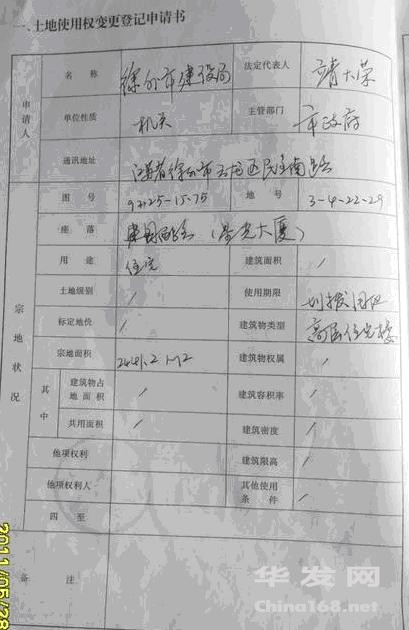 一、土地使用权变更登记申请书
申请人
名 称 徐州市建设局 法定代表人
单位性质 机关 主管部门 市政府
通讯地址 江苏省徐州市 区民主南路
宗地状况
图 号 92.25-15.75 地 号 3-4-22-29
座 落 大厦)
用 途 住宅 建筑面积 /
土地级别 / 使用期限 划拨用地
标定地价 / 建筑物类型 高层住宅楼
宗地面积 2441.2 M2 建筑物权属 /
其中
建筑物占地面积 / 建筑容积率 /
共用面积 / 建筑密度 /
他项权利 建筑限高 /
他项权利人 其他使用条件 /
四 至
备 注
2011/05/28
华发网
China168.net